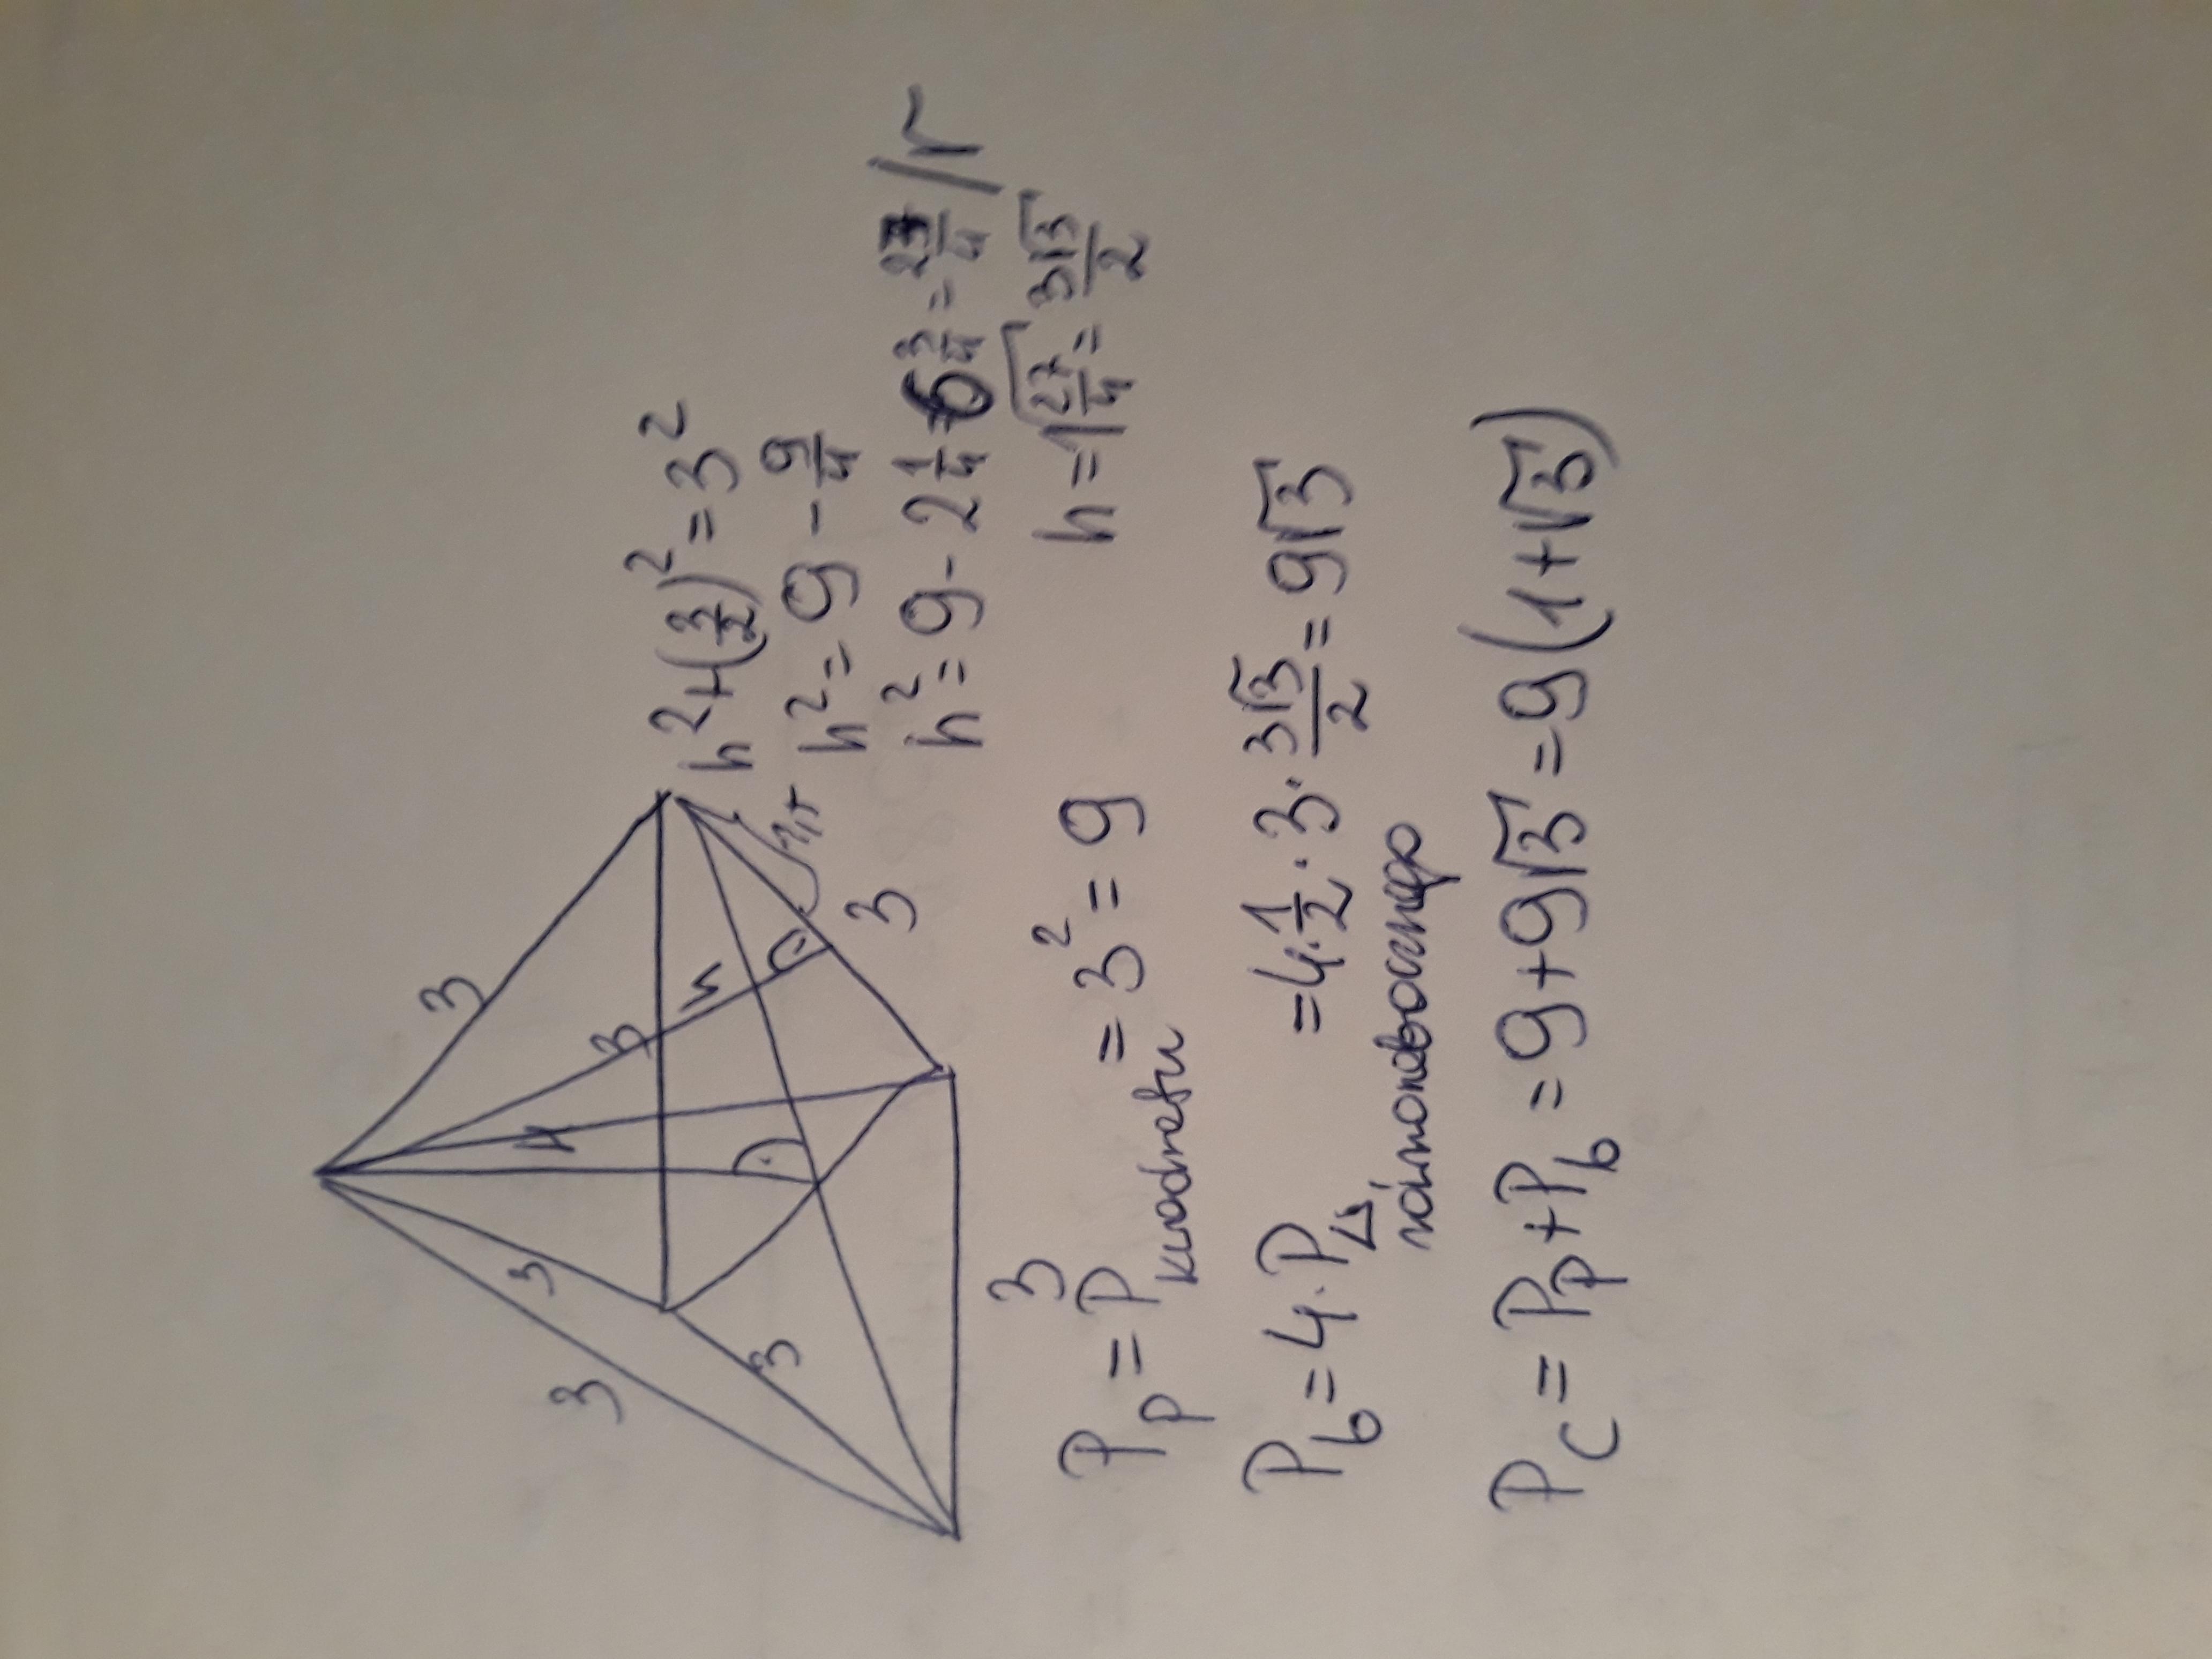 3
3
3
3
H
h
3
3
3/2
3
h²+(3/2)²=3²
h²=9-9/4
h²=9-2 1/4=6 3/4=27/4 /√
h=√27/4=3√3/2
P_p=P_kwadratu=3²=9
P_b=4·P_Δ równobocznego=4·1/2·3·3√3/2=9√3
P_c=P_p+P_b=9+9√3=9(1+√3)